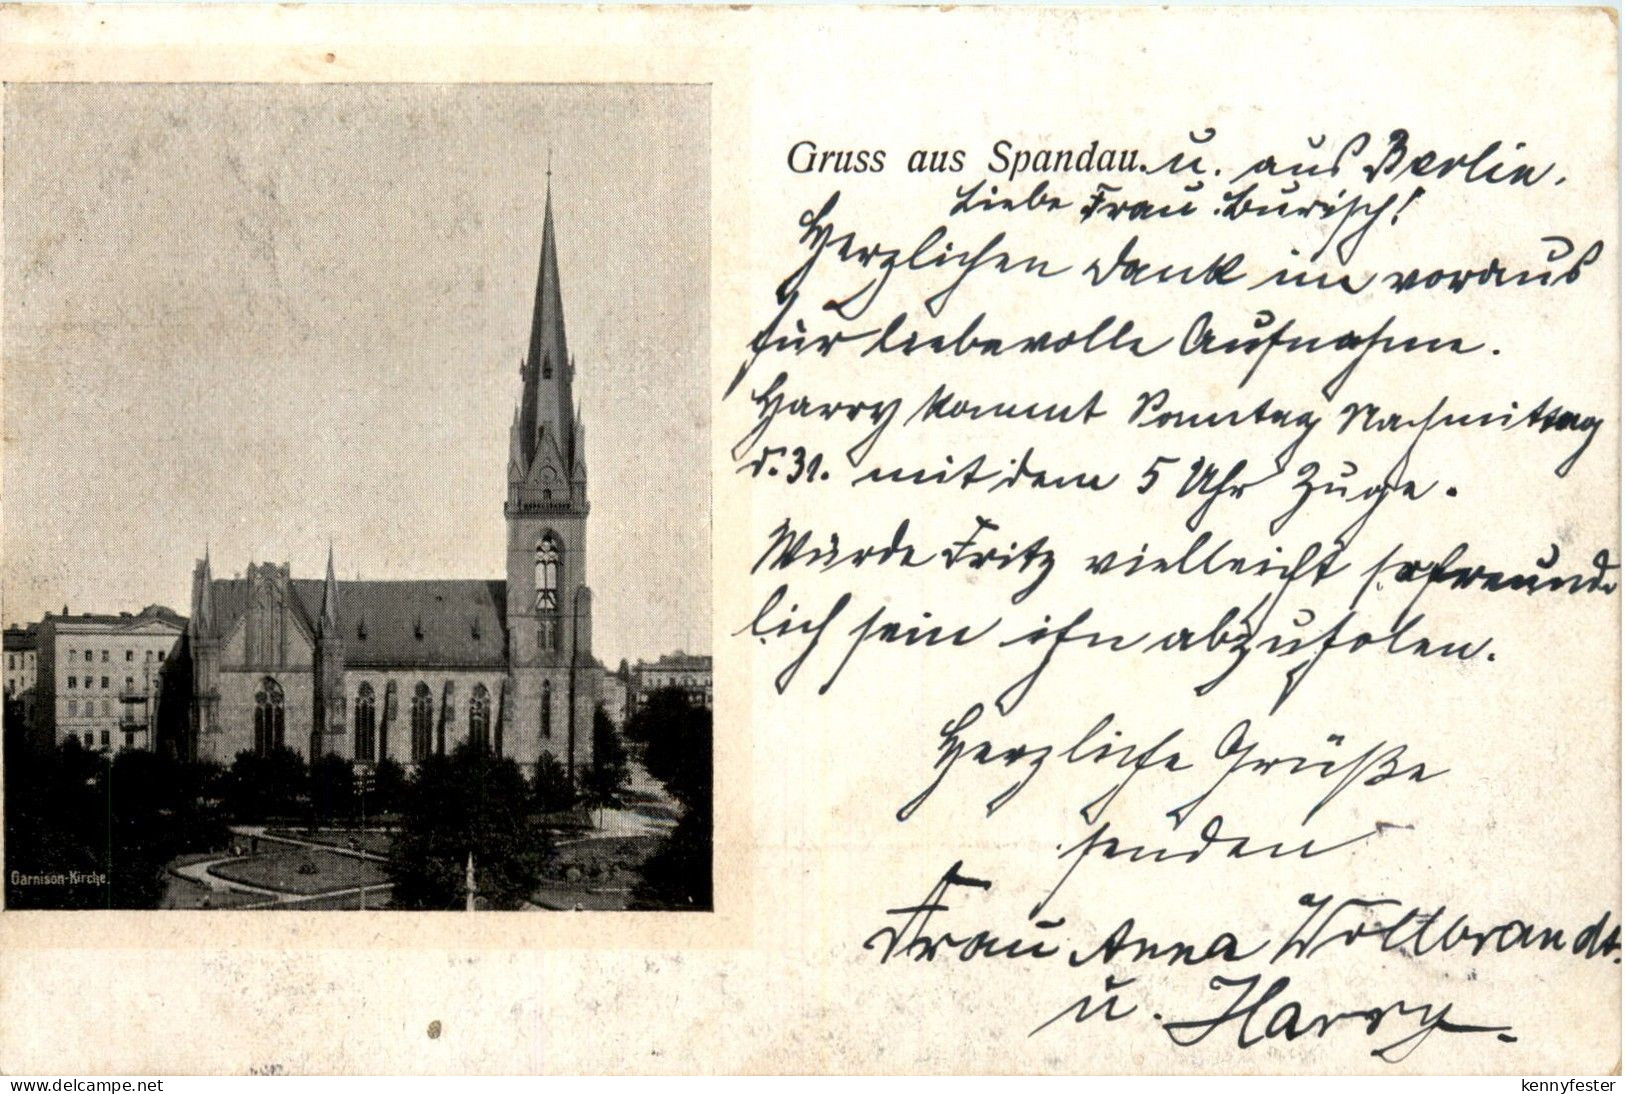 Gruss aus Spandau. u. aus Berlin.
Liebe Frau Burisch!
Herzlichen Dank im voraus
für liebevolle Aufnahme.
Harry kommt Sonntag Nachmittag
d. 31. mit dem 5 Uhr Zuge.
Würde Fritz vielleicht so freund-
lich sein ihn abzuholen.
Herzliche Grüße
senden
Frau Anna Woltbrandt.
u. Harry.
Garnison-Kirche.
www.delcampe.net
kennyfester